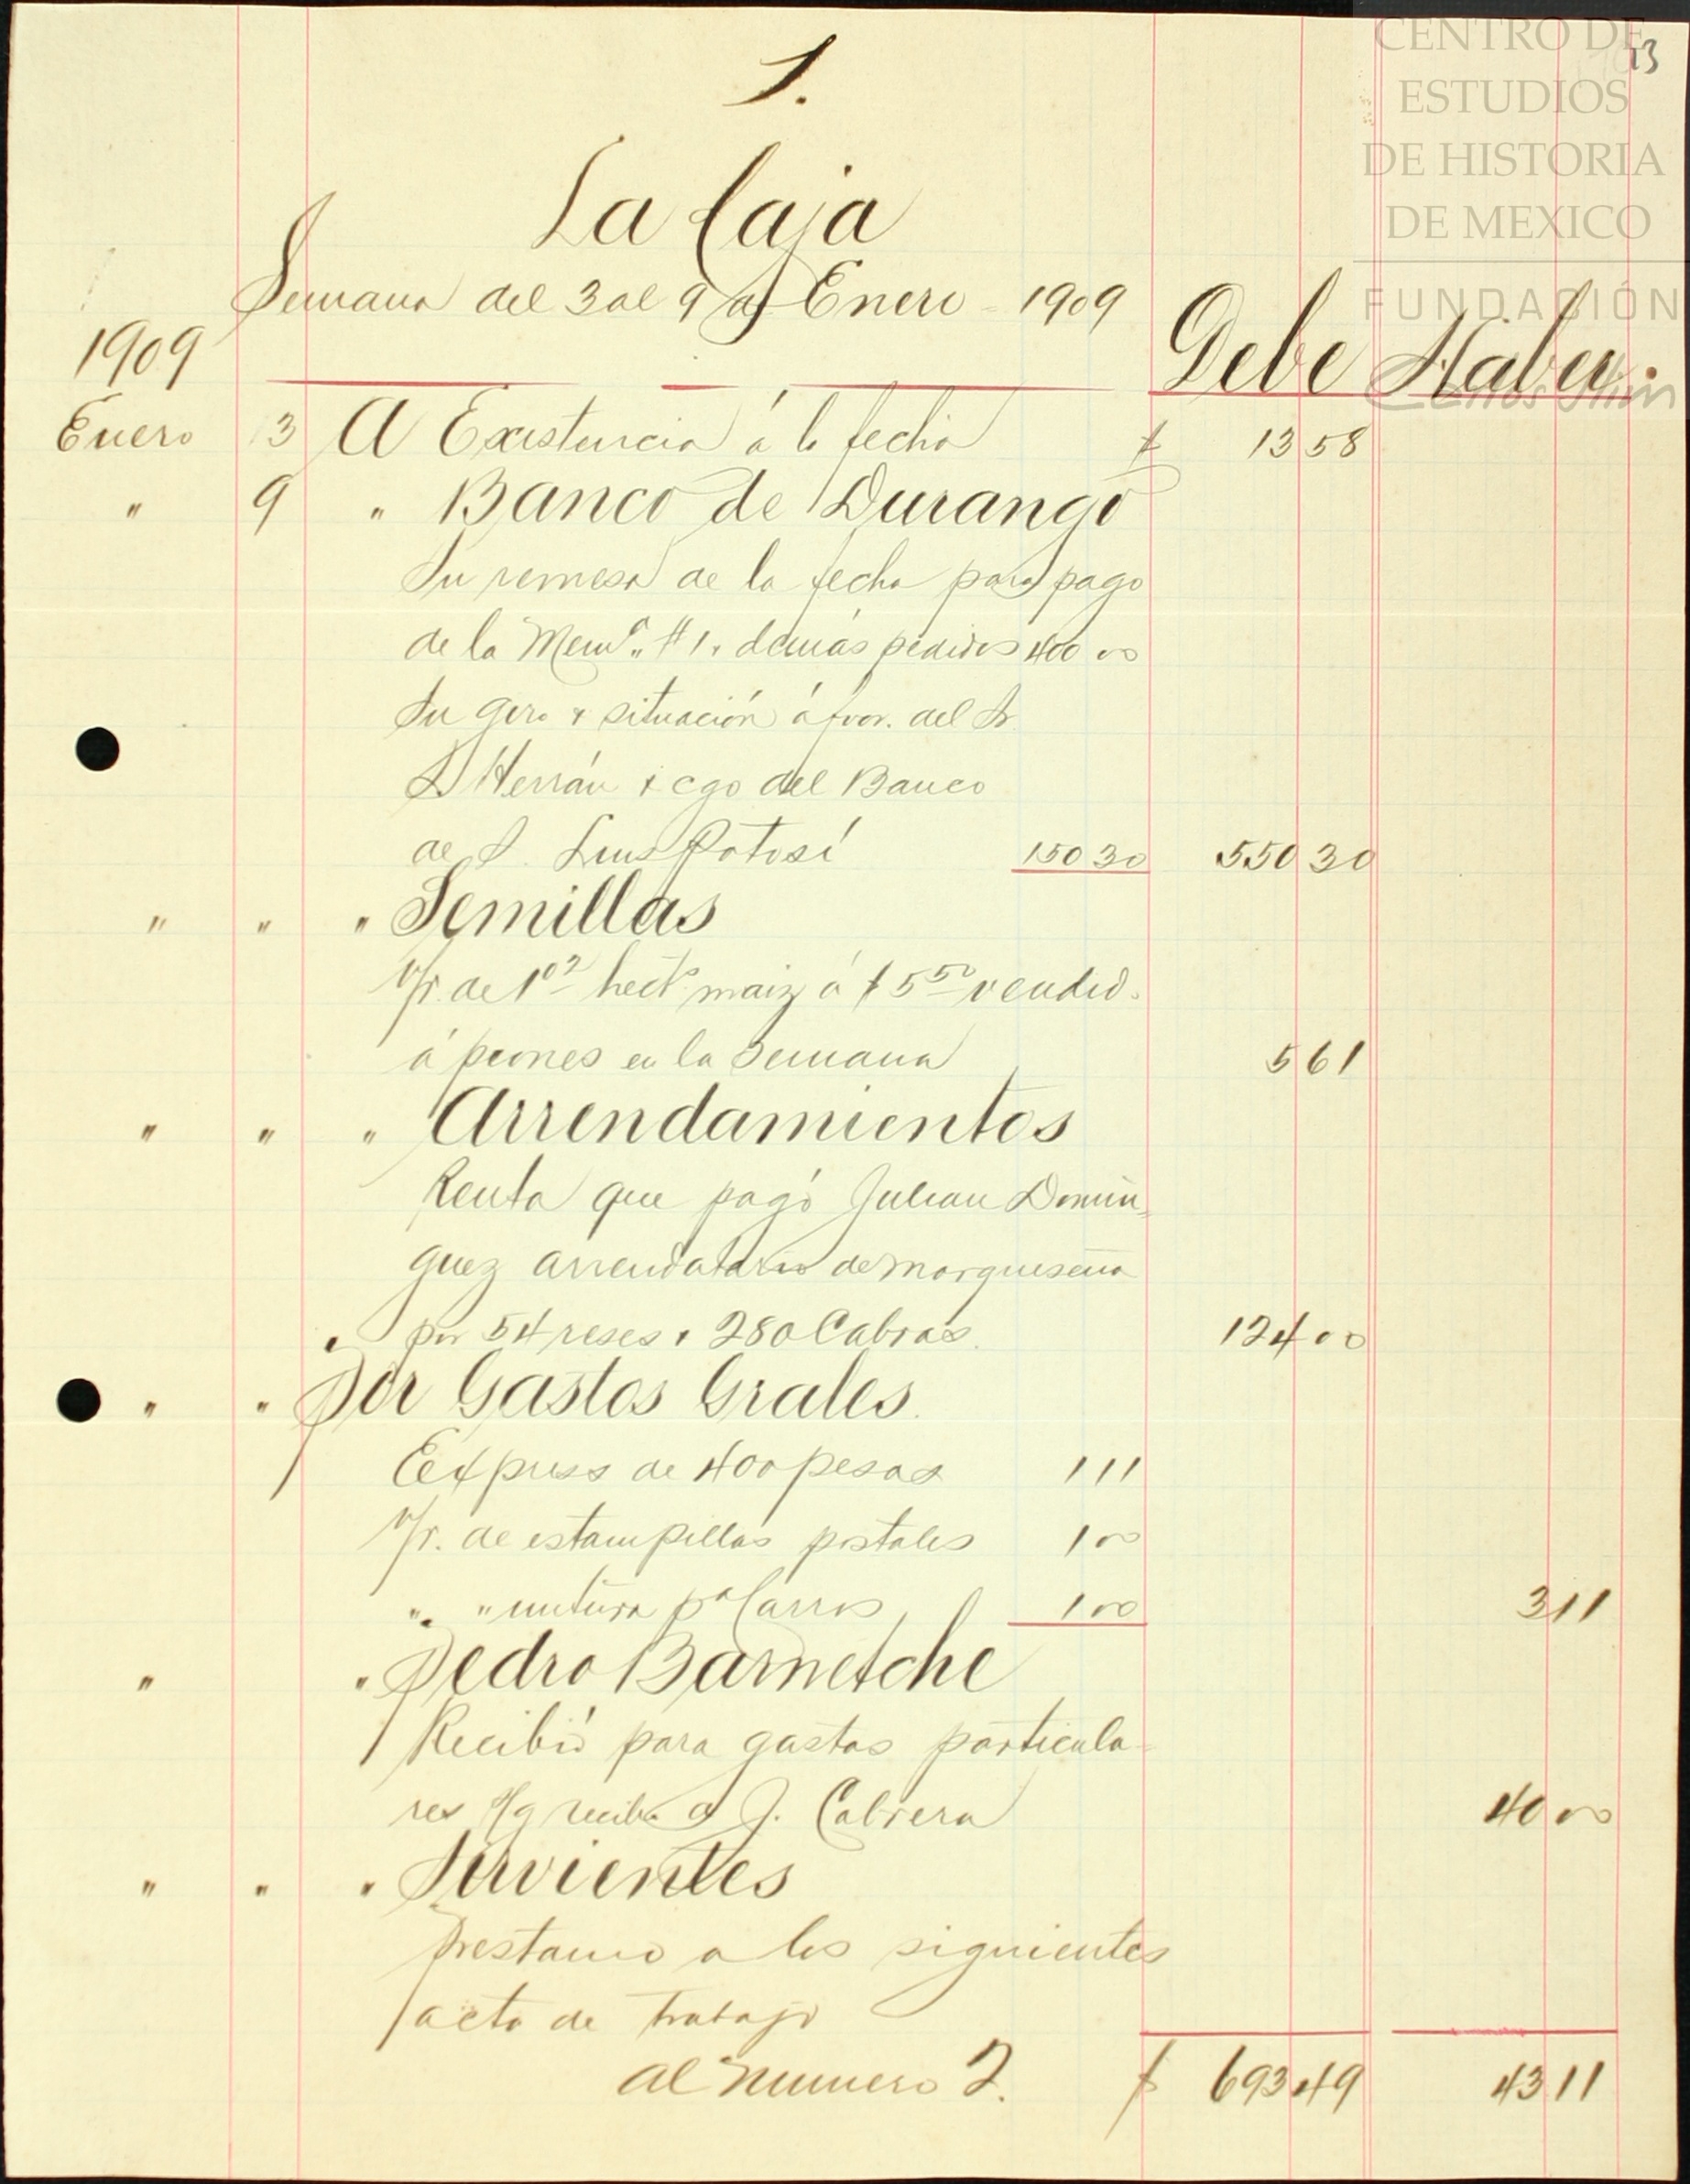 CENTRO DE
ESTUDIOS
DE HISTORIA
DE MEXICO
FUNDACIÓN
Carlos Slim
13
1.
La Caja
Semana del 3 al 9 de Enero - 1909
1909 Debe Haber.
Enero 3 A Existencia á la fecha $ 13 58
" 9 " Banco de Durango
Su remesa de la fecha para pago
de la Mema. #1 y demás pedidos 400 00
Su giro y situación á fvor. del Sr.
Herrán y cgo del Banco
de S. Luis Potosí 150 30 550 30
" " " Semillas
V/r. de 1 02 hects maiz á $ 5 50 vendid.
á peones en la semana 5 61
" " " Arrendamientos
Renta que pagó Julian Domin-
guez arrendatario de Marqueseña
por 54 reses y 280 Cabras. 124 00
" " Por Gastos Grales.
Express de 400 pesos 1 11
V/r. de estampillas postales 1 00
" " untura pa Carros 1 00 3 11
" " Pedro Barnetche
Recibió para gastos particula-
res recibo a J. Cabrera 40 00
" " " Sirvientes
Prestamo a los siguientes
a cta de trabajo
al numero 2. $ 693 49 43 11